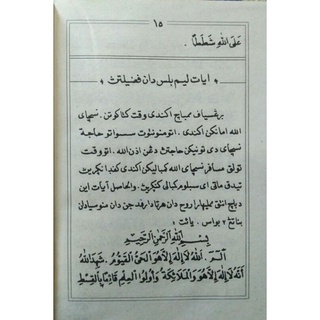 ١٥
عَلَى اللهِ شَطَطًا .
ايات ليم بلس دان فضيلتڽ
برڠسياف ممباچ اكندي وقت كتاكوتن . نسچاي
الله امانكن اكندي . اتو منونتوت سواتو حاجة
نسچاي دي تونيكن حاجتڽ دڠن اذن الله . اتو وقت
تولق مسافر نسچاي الله كمباليكن اكندي كفد
تيدق ماتي اي سبلوم كمبالي . والحاصل آيات اين
دان هرتا دان
بناتڠ ٢ بواس . يائت :
بِسْمِ اللهِ الرَّحْمٰنِ الرَّحِيْمِ
الٓمٓ . اَللهُ لَا اِلٰهَ اِلَّا هُوَ الْحَيُّ الْقَيُّوْمُ . شَهِدَ اللهُ
اَنَّهُ لَا اِلٰهَ اِلَّا هُوَ وَالْمَلَائِكَةُ وَاُولُوا الْعِلْمِ قَائِمًا بِالْقِسْطِ